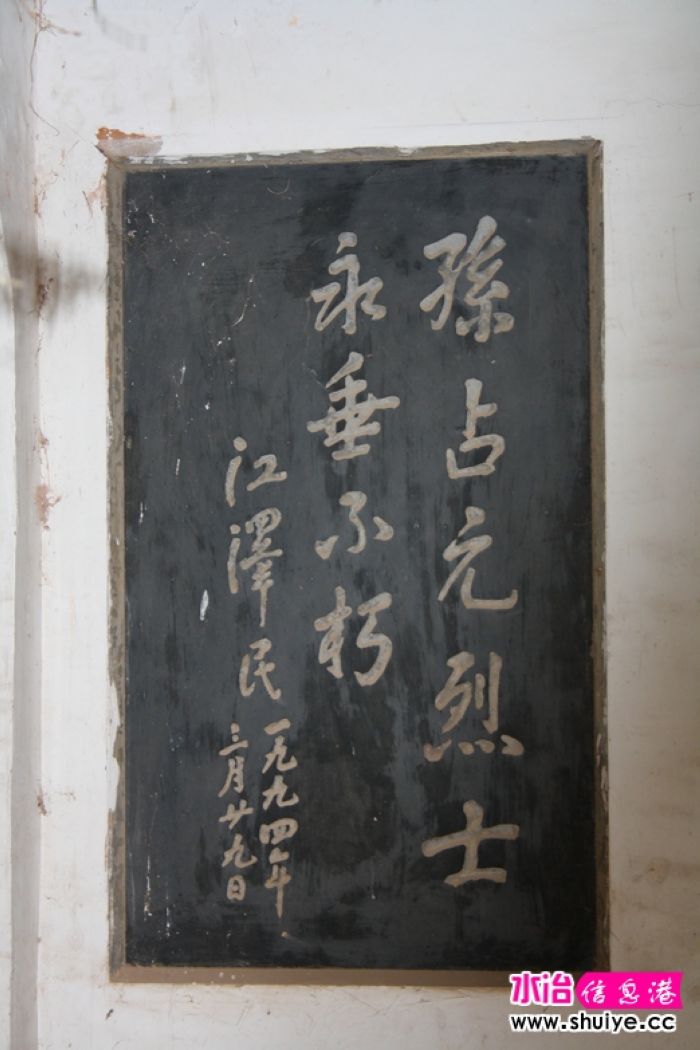 孫占元烈士
永垂不朽
江澤民
一九九四年
三月廿九日
水冶信息港
www.shuiye.cc